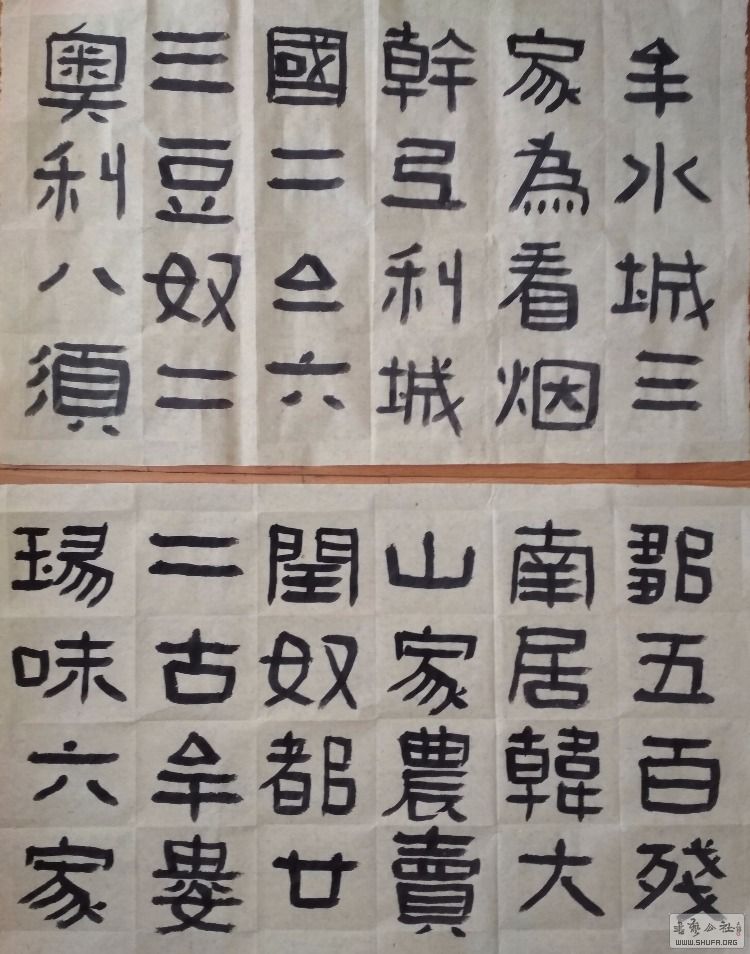 牟水城三
家為看烟
幹弓利城
國二六
三豆奴二
奥利八須
鄒五百殘
南居韓大
山家農賣
閏奴都廿
二古牟婁
味六家
書藝公社
WWW.SHUFA.ORG